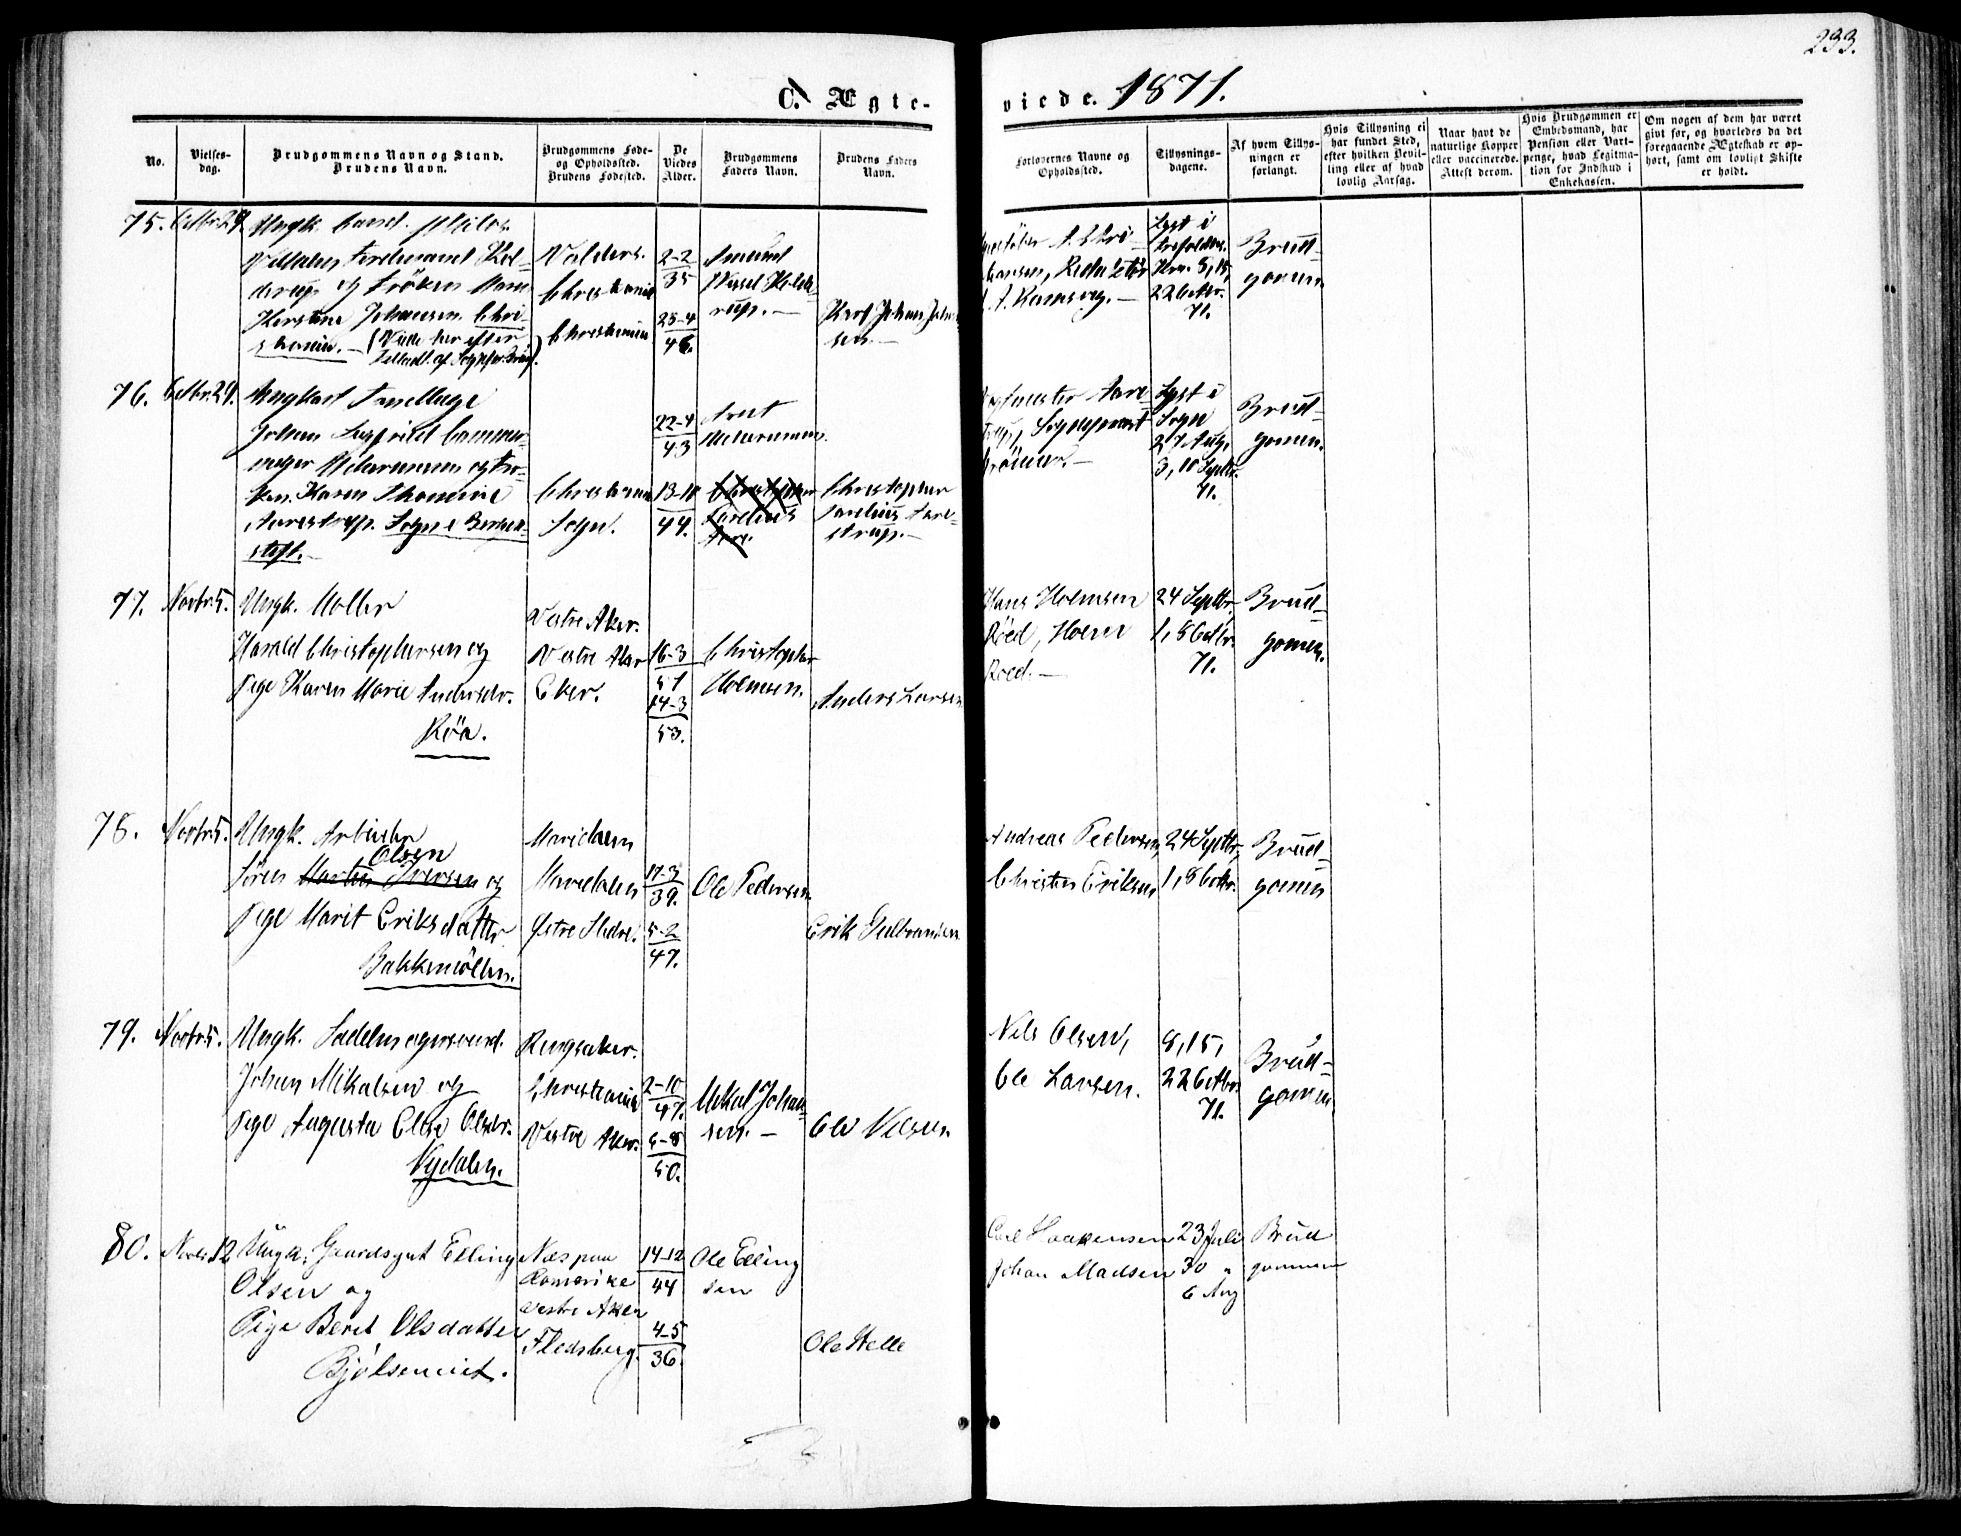 233.
C. Ægte-
viede. 1871.
No.
Vielses-
dag.
Brudgommens Navn og Stand.
Brudens Navn.
Brudgommens Føde-
og Opholdssted.
Brudens Fødested.
De
Viedes
Alder.
Brudgommens
Faders Navn.
Brudens Faders
Navn.
Forlovernes Navne og
Opholdssted.
Tillysnings-
dagene.
Af hvem Tillys-
ningen er
forlangt.
Hvis Tillysning ei
har fundet Sted,
efter hvilken Bevil-
ling eller af hvad
lovlig Aarsag.
Naar havt de
naturlige Kopper
eller vaccinerede.
Attest derom.
Hvis Brudgommen er
Embedsmand, har
Pension eller Vart-
penge, hvad Legitima-
tion for Indskud i
Enkekassen.
Om nogen af dem har været
givt før, og hvorledes da det
foregaaende Ægteskab er op-
hørt, samt om lovligt Skifte
er holdt.
75. Octbr. 29. Ungk. Cand. philos.
Vilhelm Ferdinand Kol-
derup og Fröken Mam
Kirstine Johansen. Chri-
stiania. — (Viede her efter
Tilladl. af Sognepr.
Valders.
Christiania
Christiania
2-2
35
25-4
46.
Amund
Wessel Kolde-
rup. —
Karl Johan Johan-
sen. —
Lyst i
Trefoldhs.
Kra. 8, 15,
22 Octbr.
71.
Brud-
gommen
76. Octbr. 29. Ungkarl
Johan Sigfried Cammer-
meyer Welermann og Frö-
ken Karen Thomine
Aarestrup. Sogn i Bergen-
stift. —
Christiania
Sogn.
22-4
43
13-10
44.
Arnt
Welermann.
Christopher
Carelius
Aare
Christopher
Carelius Aare-
strup. —
Aare-
strup, Sogneprest
Krömer. —
Lyst i
Sogn
27 Aug.
3, 10 Septbr.
71.
Brud-
gommen.
77. Novbr. 5. Ungk. Møller
Harald Christophersen og
Pige Karen Marie Andersdr.
Röa.
Vestre Aker.
Vestre Aker
Eker.
16-3
51
14-3
53.
Christopher
Holmsen.
Anders Larsen
Hans Holmsen
Röed, Holm
Roed. —
24 Septbr.
1, 8 Octbr.
71.
Brud-
gommen.
78. Novbr. 5. Ungk. Arbeider
Olsen
Sören Martin Iversen og
Pige Marit Eriksdatter
Bakkemöllen.
Maridalen
Maridalen
Östre Slidre.
17-3
39.
5-2
47.
Ole Pedersen.
Erik Gulbrandsen
Andreas Pedersen,
Christen Eriksen
24 Septbr.,
1, 8 Octbr.
Brud-
gommen
79. Novbr. 5. Ungk. Sadelmagersvend.
Johan Mikalsen og
Pige Augusta Elise Olsdr.
Nydalen.
Ringsaker.
Christiania
Vestre Aker.
2-10
47.
6-8
50.
Mikal Johan-
sen. —
Ole Nilsen
Nils Olsen,
Ole Larsen.
8, 15,
22 Octbr.
71.
Brud-
gommen
80. Novbr. 12 Ungk. Gaardsgut Elling
Olsen og
Pige Berit Olsdatter
Bjölsenviet.
Næs paa
Romerike
Vestre Aker
Fledsberg.
14-12
44
4-5
36.
Ole Elling
sen
Ole Helle
Carl Haakensen
Johan Madsen
23 Juli
30 "
6 Aug
Brud
gommen